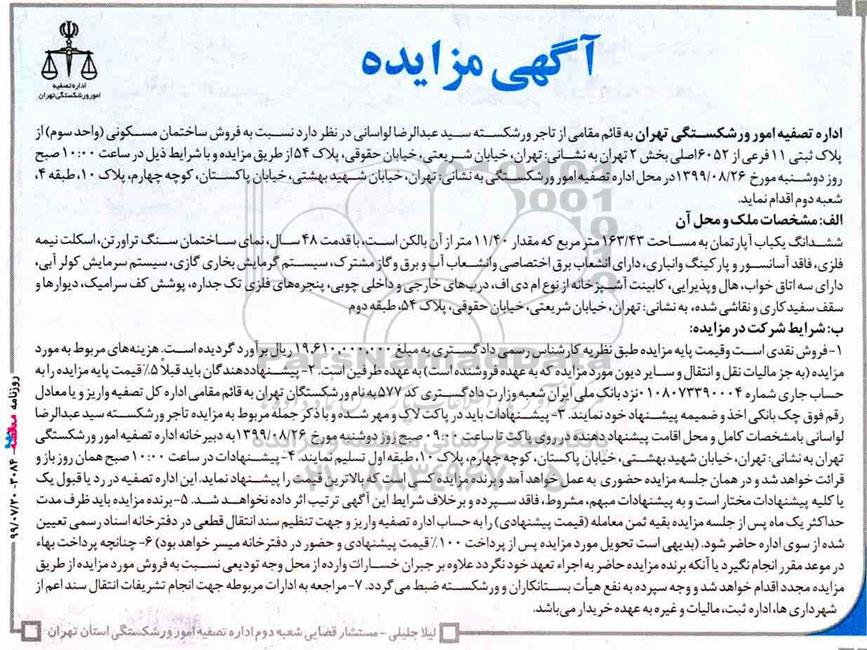 آگهی مزایده
اداره تصفیه
امور ورشکستگی تهران
اداره تصفیه امور ورشکستگی تهران به قائم مقامی از تاجر ورشکسته سید عبدالرضا لواسانی در نظر دارد نسبت به فروش ساختمان مسکونی (واحد سوم) از
پلاک ثبتی ۱۱ فرعی از ۶۰۵۲ اصلی بخش ۲ تهران به نشانی: تهران، خیابان شریعتی، خیابان حقوقی، پلاک ۵۴ از طریق مزایده و با شرایط ذیل در ساعت ۱۰:۰۰ صبح
روز دوشنبه مورخ ۱۳۹۹/۰۸/۲۶ در محل اداره تصفیه امور ورشکستگی به نشانی: تهران، خیابان شهید بهشتی، خیابان پاکستان، کوچه چهارم، پلاک ۱۰، طبقه ۴،
شعبه دوم اقدام نماید.
الف: مشخصات ملک و محل آن
ششدانگ یکباب آپارتمان به مساحت ۱۶۳/۴۳ متر مربع که مقدار ۱۱/۴۰ متر از آن بالکن است، با قدمت ۴۸ سال، نمای ساختمان سنگ تراورتن، اسکلت نیمه
فلزی، فاقد آسانسور و پارکینگ وانباری، دارای انشعاب برق اختصاصی وانشعاب آب و برق و گاز مشترک، سیستم گرمایش بخاری گازی، سیستم سرمایش کولر آبی،
دارای سه اتاق خواب، هال و پذیرایی، کابینت آشپزخانه از نوع ام دی اف، درب‌های خارجی و داخلی چوبی، پنجره‌های فلزی تک جداره، پوشش کف سرامیک، دیوارها و
سقف سفید کاری و نقاشی شده، به نشانی: تهران، خیابان شریعتی، خیابان حقوقی، پلاک ۵۴، طبقه دوم
ب: شرایط شرکت در مزایده:
۱-فروش نقدی است وقیمت پایه مزایده طبق نظریه کارشناس رسمی دادگستری به مبلغ ۱۹,۶۱۰,۰۰۰,۰۰۰ ریال برآورد گردیده است. هزینه‌های مربوط به مورد
مزایده (به جز مالیات نقل و انتقال و سایر دیون مورد مزایده که به عهده فروشنده است) به عهده طرفین است. ۲-پیشنهاددهندگان باید قبلاً ۵٪ قیمت پایه مزایده را به
حساب جاری شماره ۰۱۰۸۰۷۳۳۹۰۰۰۴ نزد بانک ملی ایران شعبه وزارت دادگستری کد ۵۷۷ به نام ورشکستگان تهران به قائم مقامی اداره کل تصفیه واریز و یا معادل
رقم فوق چک بانکی اخذ و ضمیمه پیشنهاد خود نمایند. ۳-پیشنهادات باید در پاکت لاک و مهر شده و با ذکر جمله مربوط به مزایده تاجر ورشکسته سید عبدالرضا
لواسانی بامشخصات کامل و محل اقامت پیشنهاد دهنده در روی پاکت تا ساعت ۰۹:۰۰ صبح روز دوشنبه مورخ ۱۳۹۹/۰۸/۲۶ به دبیرخانه اداره تصفیه امور ورشکستگی
تهران به نشانی: تهران، خیابان شهید بهشتی، خیابان پاکستان، کوچه چهارم، پلاک ۱۰، طبقه اول تسلیم نمایند. ۴-پیشنهادات در ساعت ۱۰:۰۰ صبح همان روز باز و
قرائت خواهد شد و در همان جلسه مزایده حضوری به عمل خواهد آمد و برنده مزایده کسی است که بالاترین قیمت را پیشنهاد نماید. این اداره تصفیه در رد یا قبول یک
یا کلیه پیشنهادات مختار است و به پیشنهادات مبهم، مشروط، فاقد سپرده و برخلاف شرایط این آگهی ترتیب اثر داده نخواهد شد. ۵-برنده مزایده باید ظرف مدت
حداکثر یک ماه پس از جلسه مزایده بقیه ثمن معامله (قیمت پیشنهادی) را به حساب اداره تصفیه واریز و جهت تنظیم سند انتقال قطعی در دفترخانه اسناد رسمی تعیین
شده از سوی اداره حاضر شود. (بدیهی است تحویل مورد مزایده پس از پرداخت ۱۰۰٪ قیمت پیشنهادی و حضور در دفترخانه میسر خواهد بود) ۶-چنانچه پرداخت بهاء
در موعد مقرر انجام نگیرد یا آنکه برنده مزایده حاضر به اجراء تعهد خود نگردد علاوه بر جبران خسارات وارده از محل وجه تودیعی نسبت به فروش مورد مزایده از طریق
مزایده مجدد اقدام خواهد شد و وجه سپرده به نفع هیأت بستانکاران و ورشکسته ضبط می گردد. ۷-مراجعه به ادارات مربوطه جهت انجام تشریفات انتقال سند اعم از
شهرداری ها، اداره ثبت، مالیات و غیره به عهده خریدار می‌باشد.
لیلا جلیلی - مستشار قضایی شعبه دوم اداره تصفیه امور ورشکستگی استان تهران
روزنامه
۹۹/۰۷/۲۰-۳۰۸۴
ParsNamadData